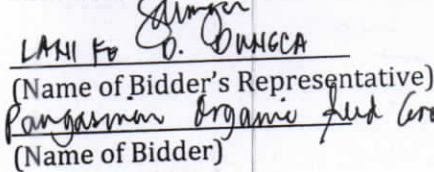 LANI FE D. DUNGCA
(Name of Bidder's Representative)
Pangasinan Organic Seed
(Name of Bidder)